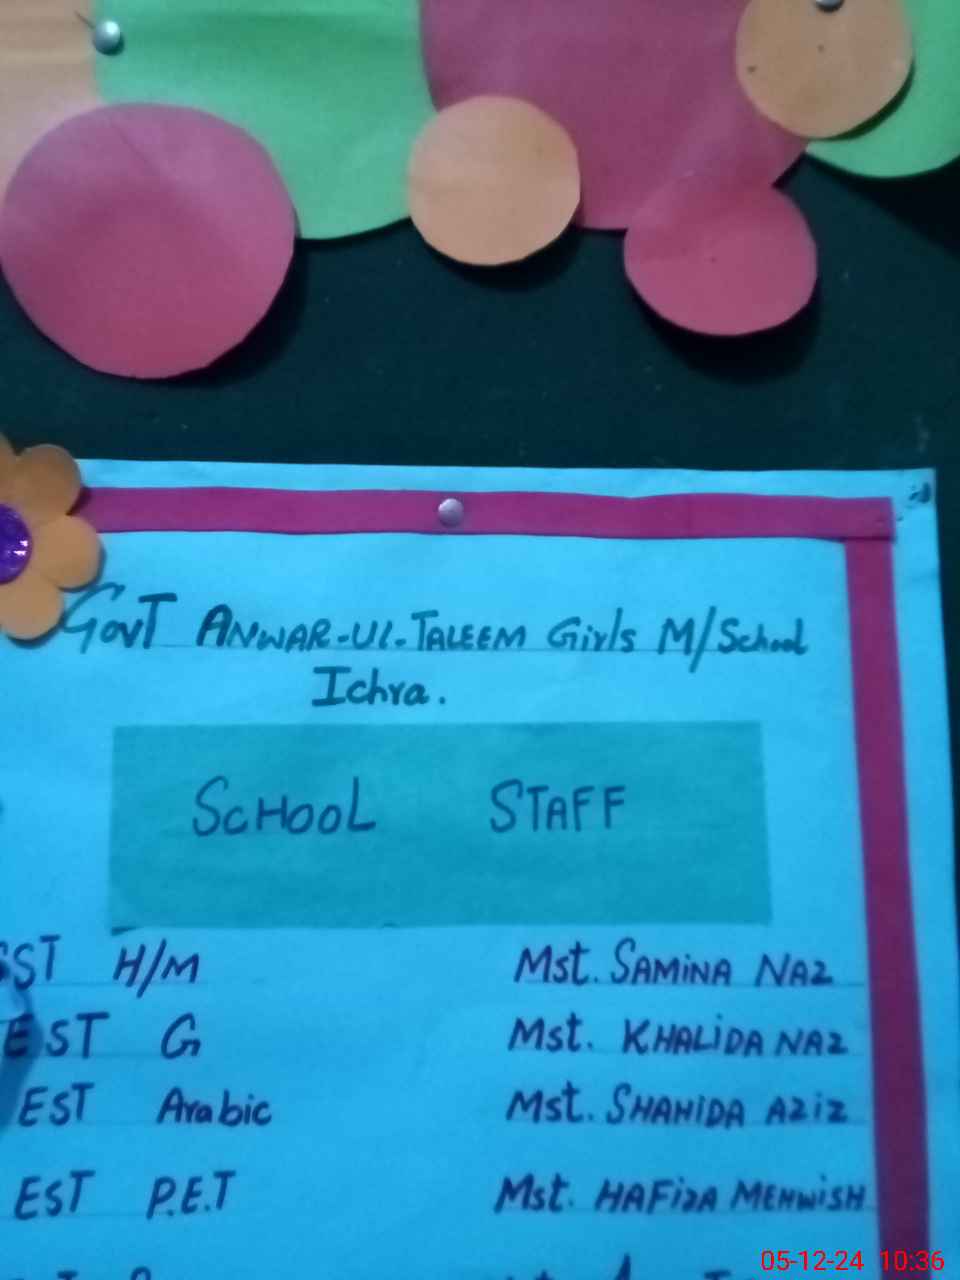 Govt ANWAR-Ul-TALEEM Girls M/School
Ichra.
SCHOOL STAFF
SST H/M Mst. SAMINA NAZ
EST G Mst. KHALIDA NAZ
EST Arabic Mst. SHAHIDA AZIZ
EST P.E.T Mst. HAFIZA MEHWISH
05-12-24 10:36